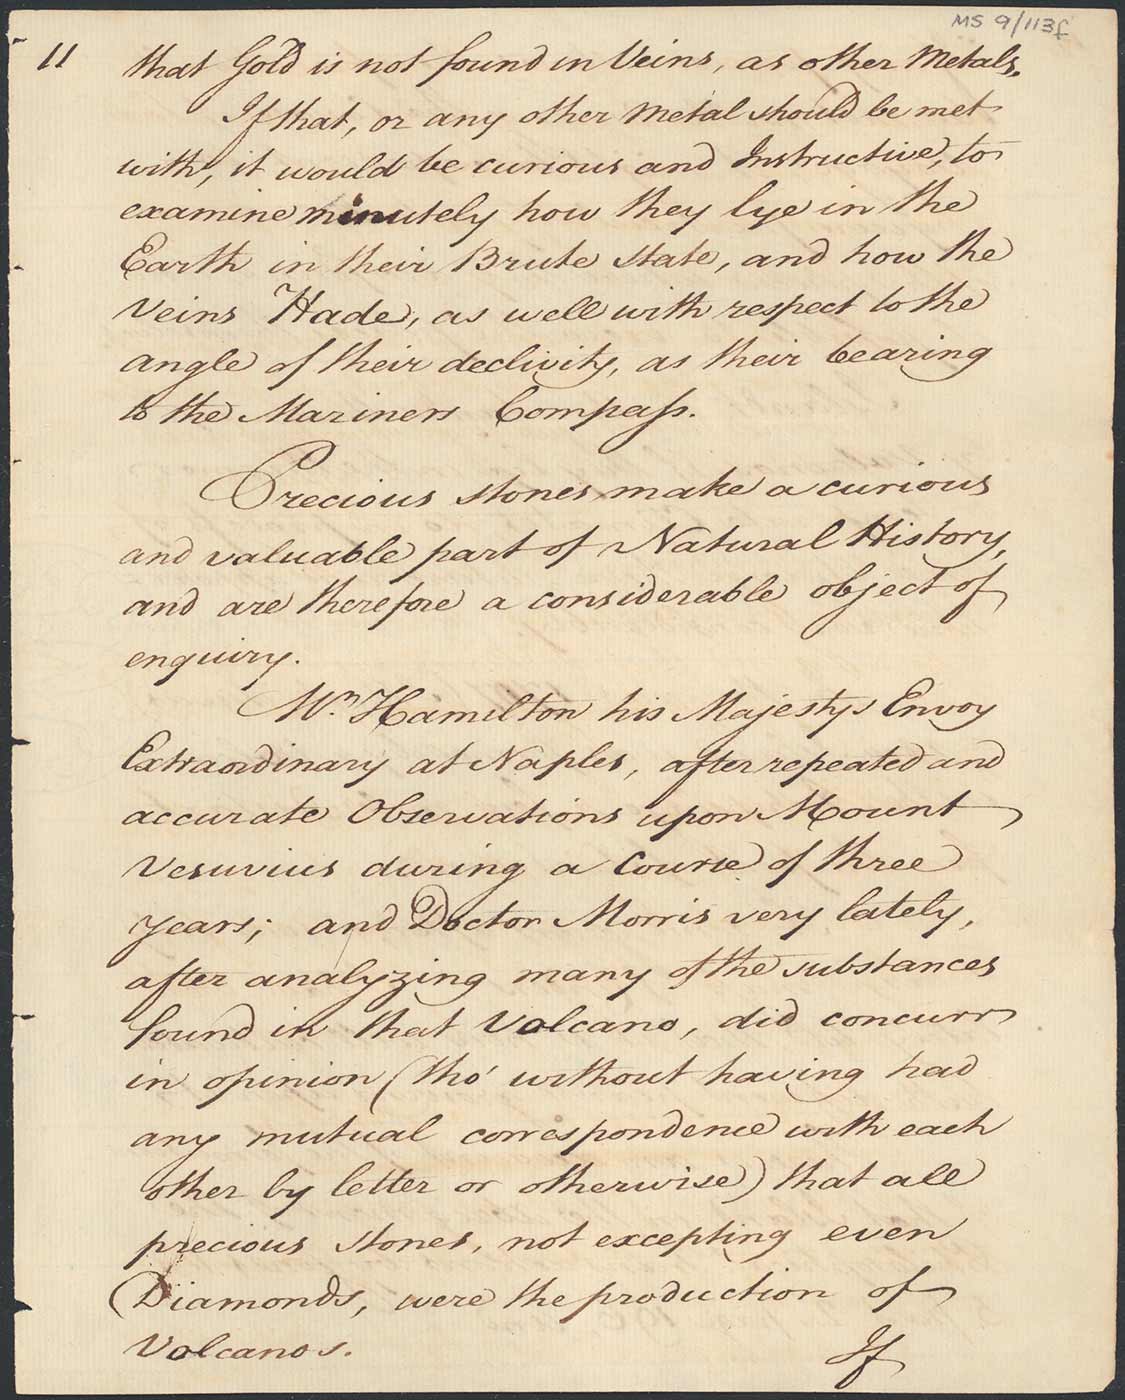 MS 9/113f
11
that Gold is not found in Veins, as other Metals.
If that, or any other Metal should be met
with, it would be curious and Instructive, to
examine minutely how they lye in the
Earth in their Brute State, and how the
Veins Hade, as well with respect to the
angle of their declivity, as their bearing
to the Mariners Compass.
Precious stones make a curious
and valuable part of Natural History,
and are therefore a considerable object of
enquiry.
Wm. Hamilton his Majestys Envoy
Extraordinary at Naples, after repeated and
accurate Observations upon Mount
Vesuvius during a Course of three
years; and Doctor Morris very lately,
after analyzing many of the substances
found in that Volcano, did concurr
in opinion (tho' without having had
any mutual correspondence with each
other by letter or otherwise) that all
precious stones, not excepting even
(Diamonds, were the production of
Volcanos.
If